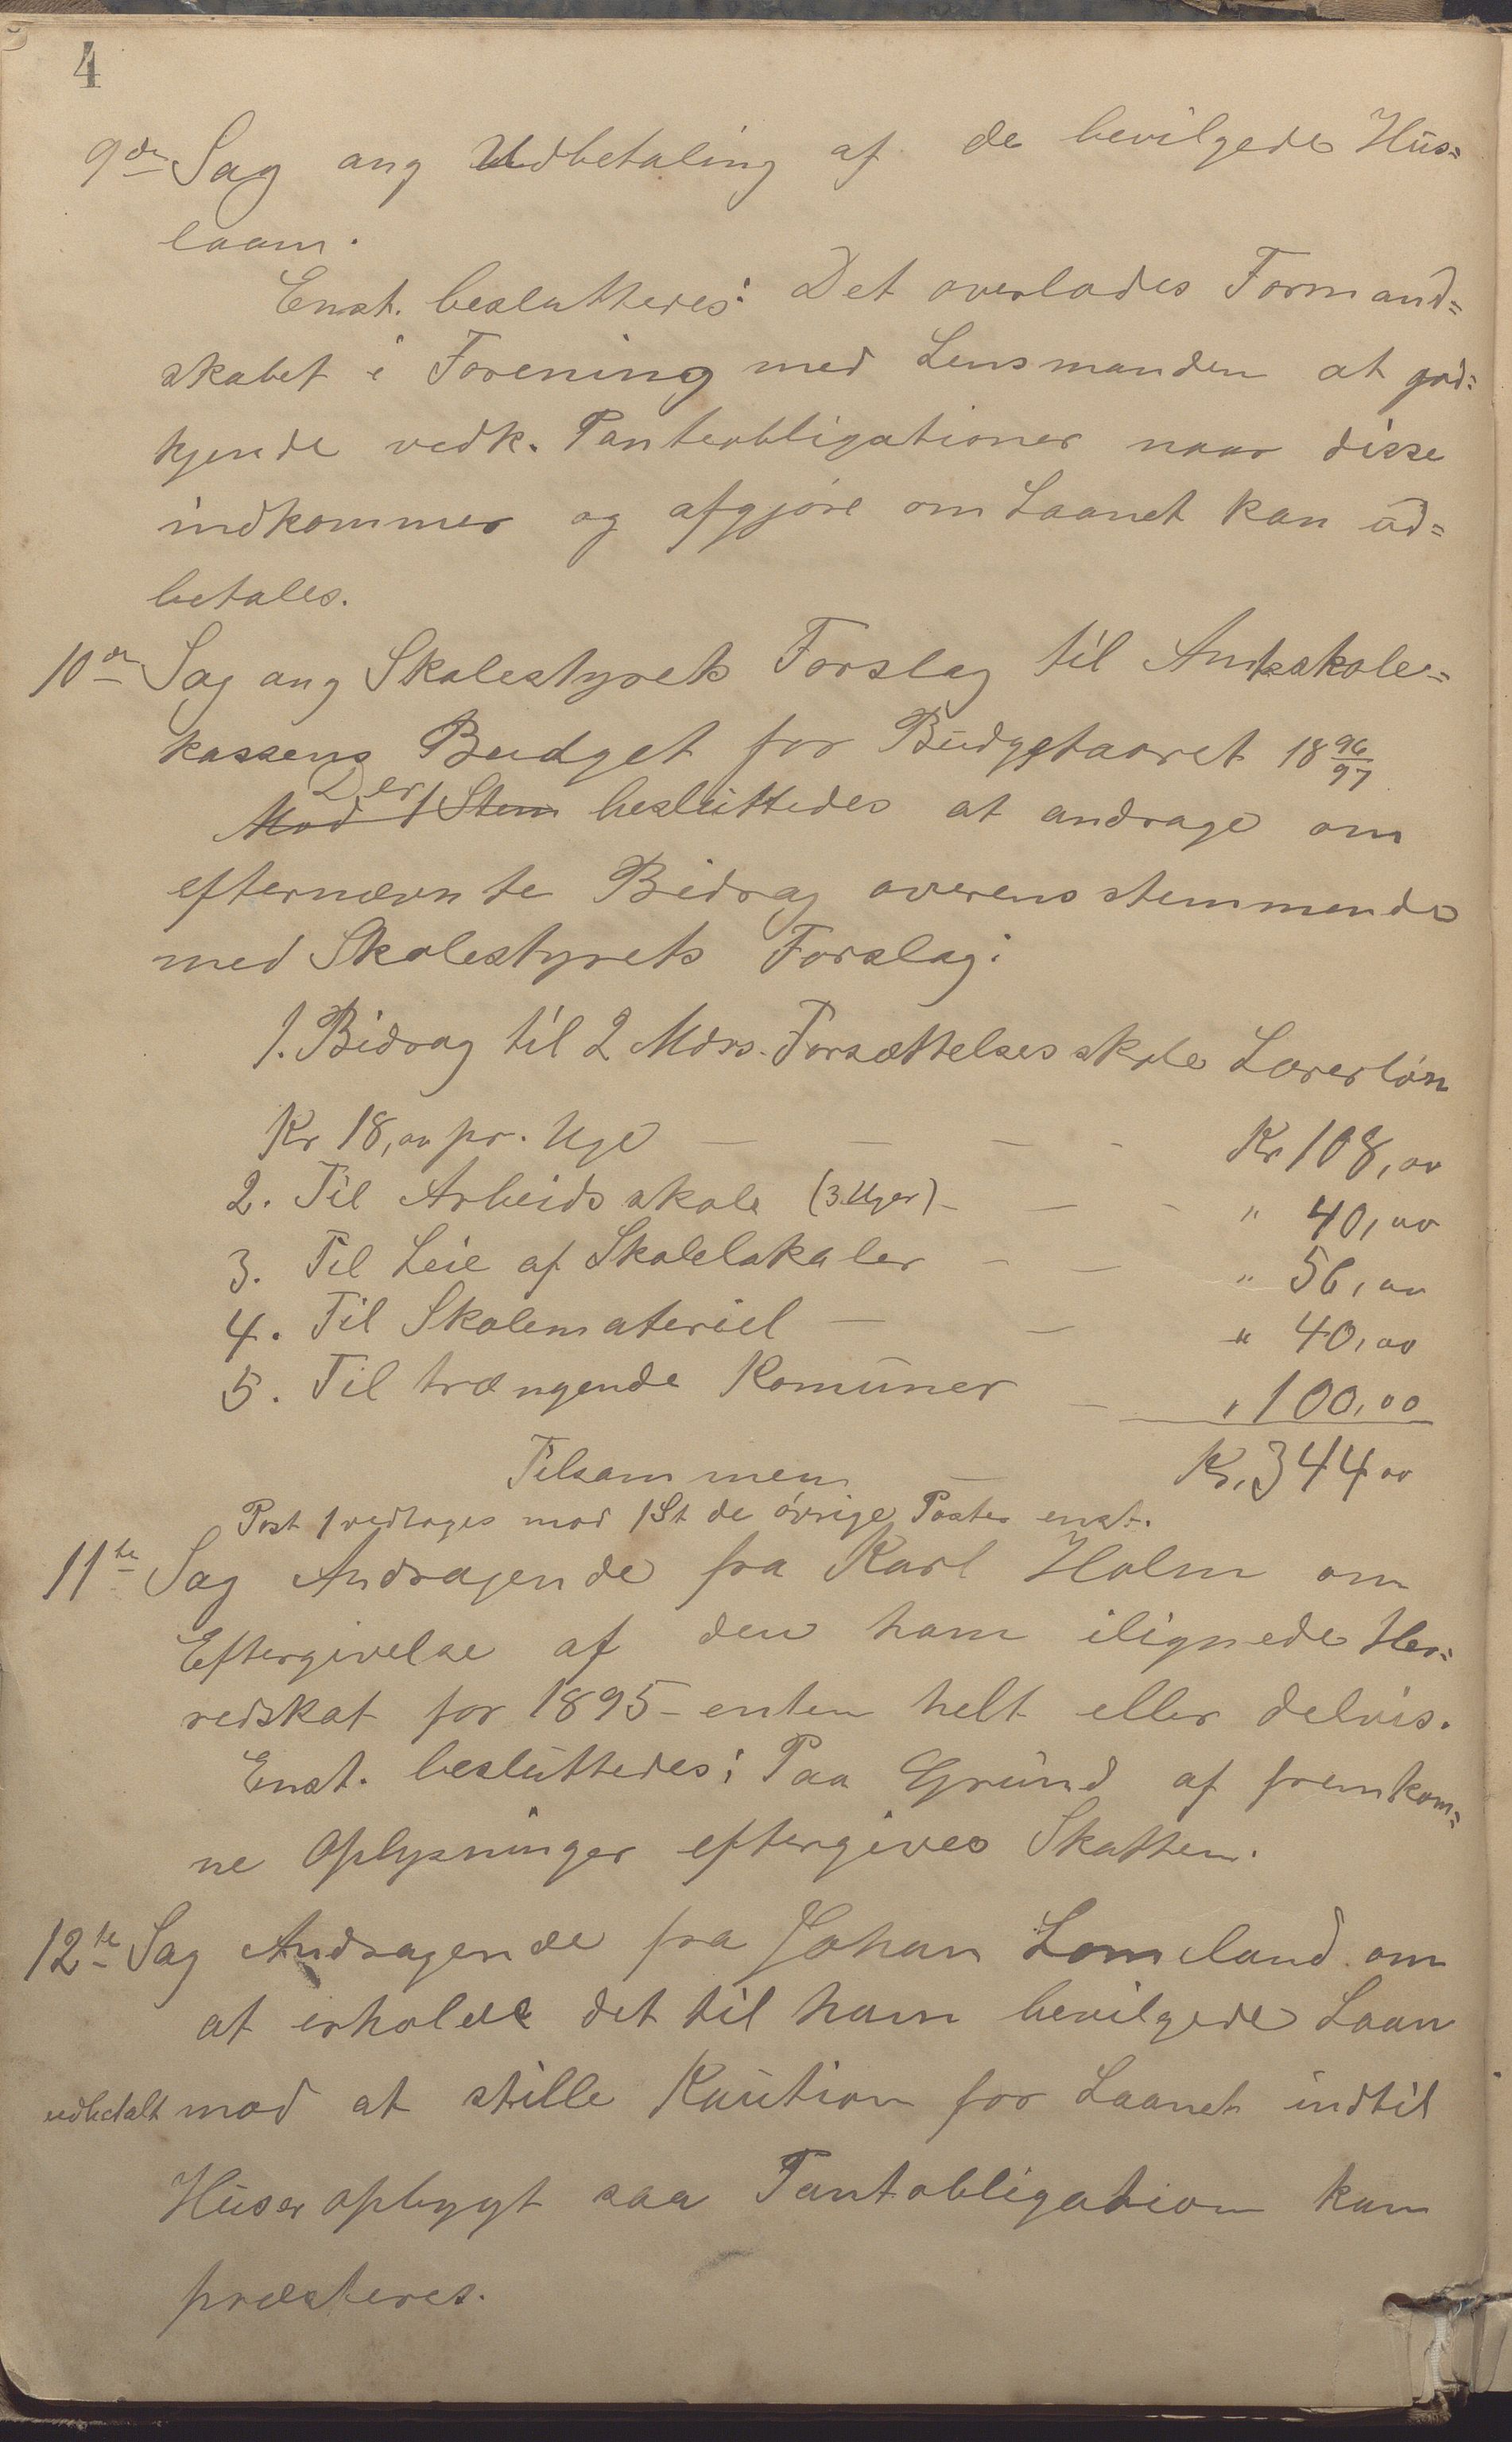 4
9de Sag ang Udbetaling af de bevilgede Hus=
laan.
Enst. besluttedes: Det overlades Formand=
skabet i Forening med Lensmanden at god=
kjende vedk. Panteobligationer naar disse
indkommer og afgjøre om Laanet kan ud=
betales.
10de Sag ang Skolestyrets Forslag til Amtsskole=
kassens Budget for Budgetaaret 18 96/97
Der
Mod 1 Stem besluttedes at andrage om
efternævnte Bidrag overensstemmende
med Skolestyrets Forslag:
1. Bidrag til 2 Mdrs. Forsættelsesskole Lærerløn
Kr 18,00 pr. Uge — — — - Kr 108,00
2. Til Arbeidsskole (3 Uger) - — - " 40,00
3. Til Leie af Skolelokaler - — " 56,00
4. Til Skolemateriel — — " 40,00
5. Til trængende Komuner - " 100,00
Tilsammen — Kr. 344 00
Post 1 vedtoges mod 1 St de øvrige Poster enst.
11te Sag Andragende fra Karl Holm om
Eftergivelse af den ham ilignede Her=
redskat for 1895 - enten helt eller delvis.
Enst. besluttedes: Paa Grund af fremkom=
ne Oplysninger eftergives Skatten.
12te Sag Andragende fra Johan Lomeland om
at erholde det til ham bevilgede Laan
udbetalt mod at stille Kaution for Laanet indtil
Huser opbygt saa Pantobligation kan
præsteres.